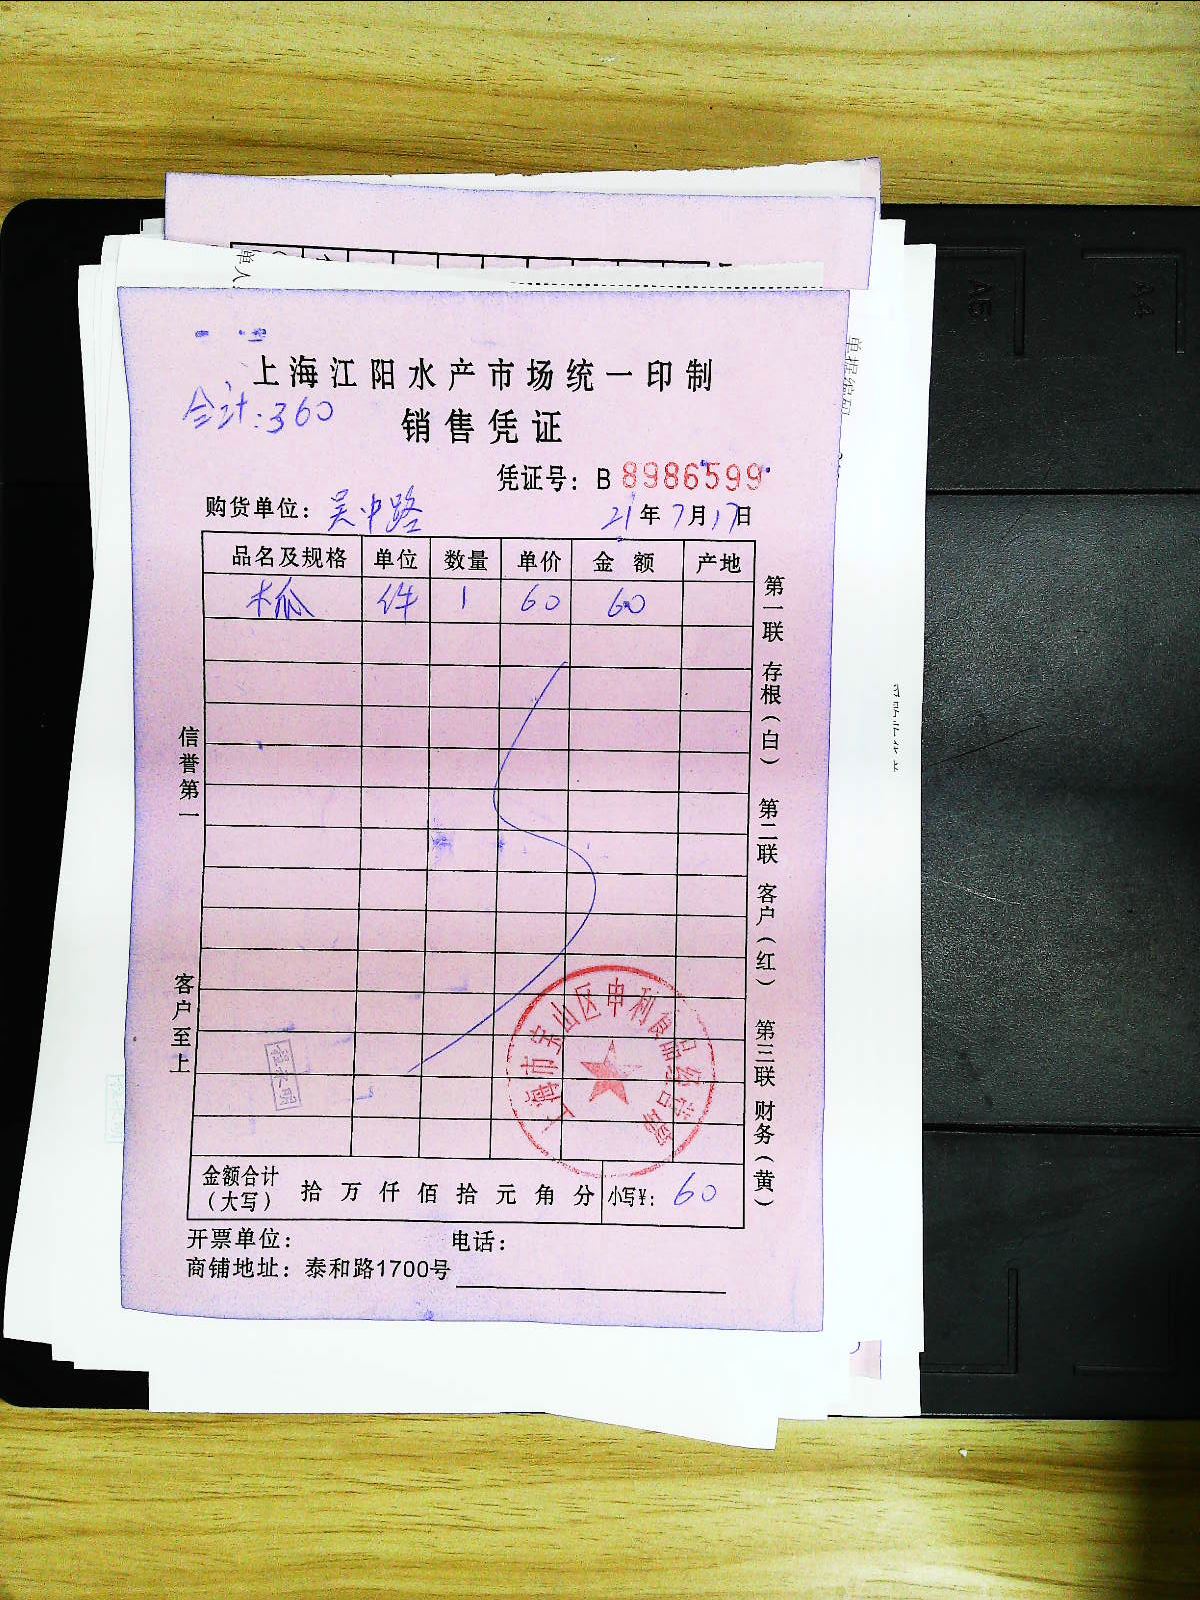 上海江阳水产市场统一印制
合计:360
销售凭证
凭证号：B 8986599
购货单位：吴中路
21年7月17日
品名及规格 单位 数量 单价 金额 产地
木瓜 件 1 60 60
信誉第一
客户至上
第一联 存根（白） 第二联 客户（红） 第三联 财务（黄）
上海市宝山区申利食品经营部
金额合计（大写） 拾万仟佰拾元角分 小写¥：60
开票单位： 电话：
商铺地址：泰和路1700号
单据编码
A5
A4